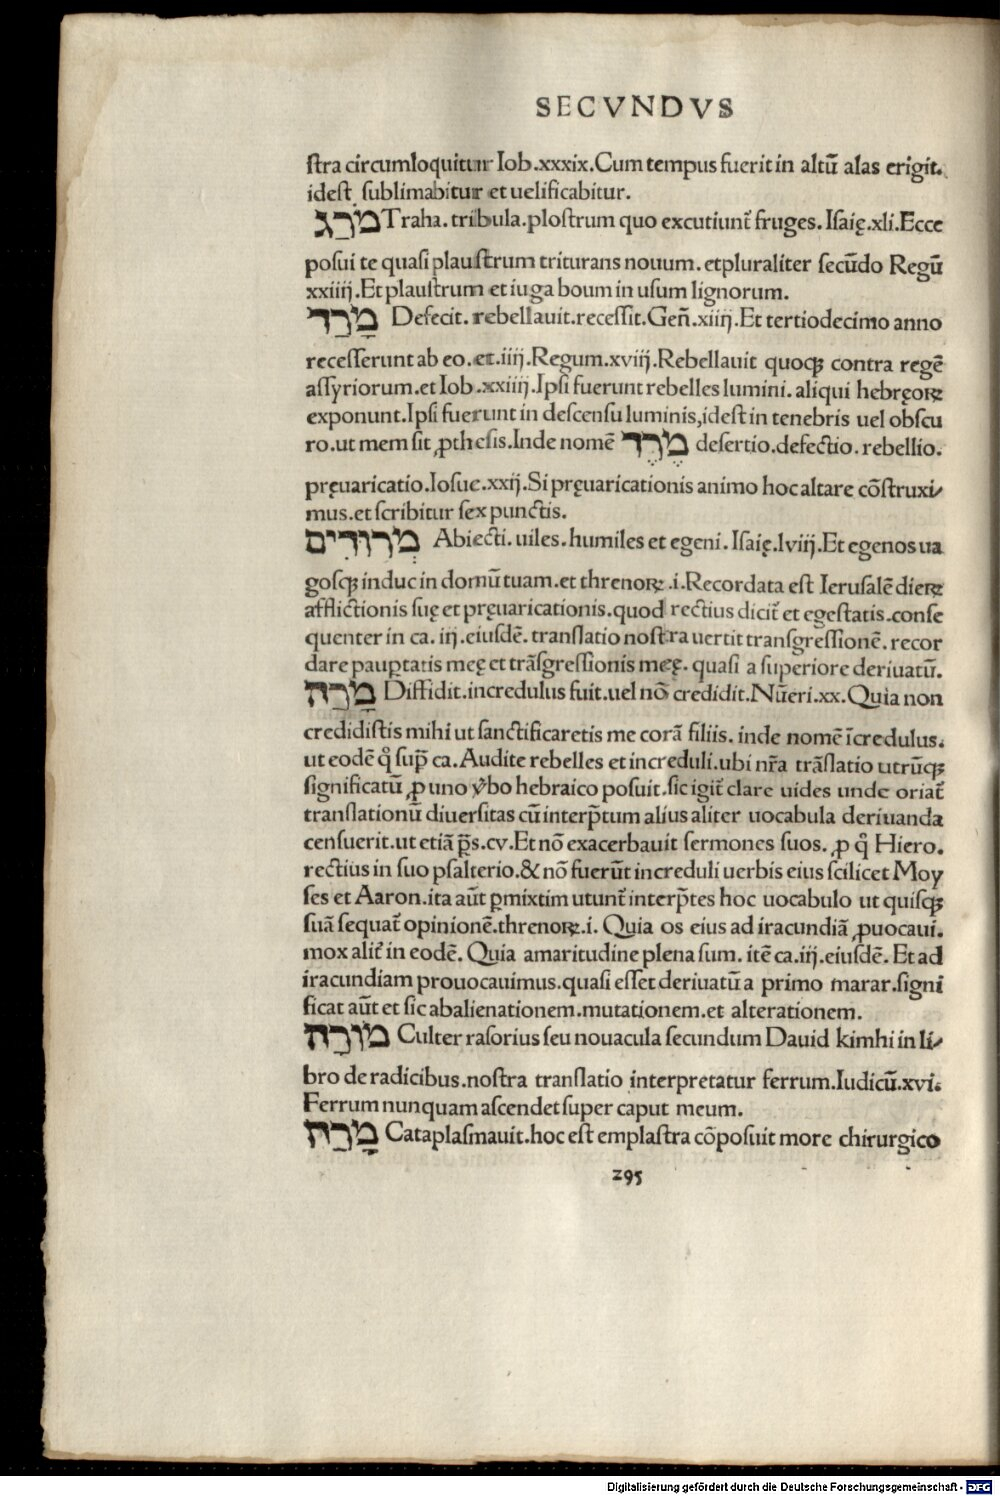 SECVNDVS
ſtra circumloquitur Iob.xxxix.Cum tempus fuerit in altū alas erigit.
ideſt ſublimabitur et uelificabitur.
מֹרַג Traha.tribula.ploſtrum quo excutiunt̄ fruges.Iſaię.xli.Ecce
poſui te quaſi plauſtrum triturans nouum.etpluraliter ſecūdo Regū
xxiiij.Et plauſtrum et iuga boum in uſum lignorum.
מָרַד Defecit.rebellauit.receſſit.Geñ.xiiij.Et tertiodecimo anno
receſſerunt ab eo.et.iiij.Regum.xviij.Rebellauit quoqꝫ contra regē
aſſyriorum.et Iob.xxiiij.Ipſi fuerunt rebelles lumini.aliqui hebręoꝝ
exponunt.Ipſi fuerunt in deſcenſu luminis,ideſt in tenebris uel obſcu
ro.ut mem ſit ꝓtheſis.Inde nomē מֶרֶד deſertio.defectio.rebellio.
pręuaricatio.Ioſue.xxij.Si pręuaricationis animo hoc altare cōſtruxi⸗
mus.et ſcribitur ſex punctis.
מְרוּדִים Abiecti.uiles.humiles et egeni.Iſaię.lviij.Et egenos ua
goſqꝫ induc in domū tuam.et threnoꝝ.i.Recordata eſt Ieruſalē dieꝝ
afflictionis ſuę et pręuaricationis.quod rectius dicit̄ et egeſtatis.conſe
quenter in ca.iij.eiuſdē.tranſlatio noſtra uertit tranſgreſſionē.recor
dare pauꝑtatis meę et trāſgreſſionis meę.quaſi a ſuperiore deriuatū.
מָרָה Diffidit.incredulus fuit.uel nō credidit.Nūeri.xx.Quia non
credidiſtis mihi ut ſanctificaretis me corā filiis.inde nomē īcredulus.
ut eodē qͦ ſup̄ ca.Audite rebelles et increduli.ubi nr̄a trāſlatio utrūqꝫ
ſignificatū ꝓ uno ỽbo hebraico poſuit.ſic igit̄ clare uides unde oriat̄
tranſlationū diuerſitas cū interp̄tum alius aliter uocabula deriuanda
cenſuerit.ut etiā p̄s.cv.Et nō exacerbauit ſermones ſuos.ꝓ qͦ Hiero.
rectius in ſuo pſalterio.& nō fuerūt increduli uerbis eius ſcilicet Moy
ſes et Aaron.ita aūt ꝑmixtim utunt̄ interp̄tes hoc uocabulo ut quiſqꝫ
ſuā ſequat̄ opinionē.threnoꝝ.i.Quia os eius ad iracundiā ꝓuocaui.
mox alit̄ in eodē.Quia amaritudine plena ſum.itē ca.iij.eiuſdē.Et ad
iracundiam prouocauimus.quaſi eſſet deriuatū a primo marar.ſigni
ficat aūt et ſic abalienationem.mutationem.et alterationem.
מוֹרָה Culter raſorius ſeu nouacula ſecundum Dauid kimhi in li⸗
bro de radicibus.noſtra tranſlatio interpretatur ferrum.Iudicū.xvi.
Ferrum nunquam aſcendet ſuper caput meum.
מָרַח Cataplaſmauit.hoc eſt emplaſtra cōpoſuit more chirurgico
295
Digitalisierung gefördert durch die Deutsche Forschungsgemeinschaft - DFG